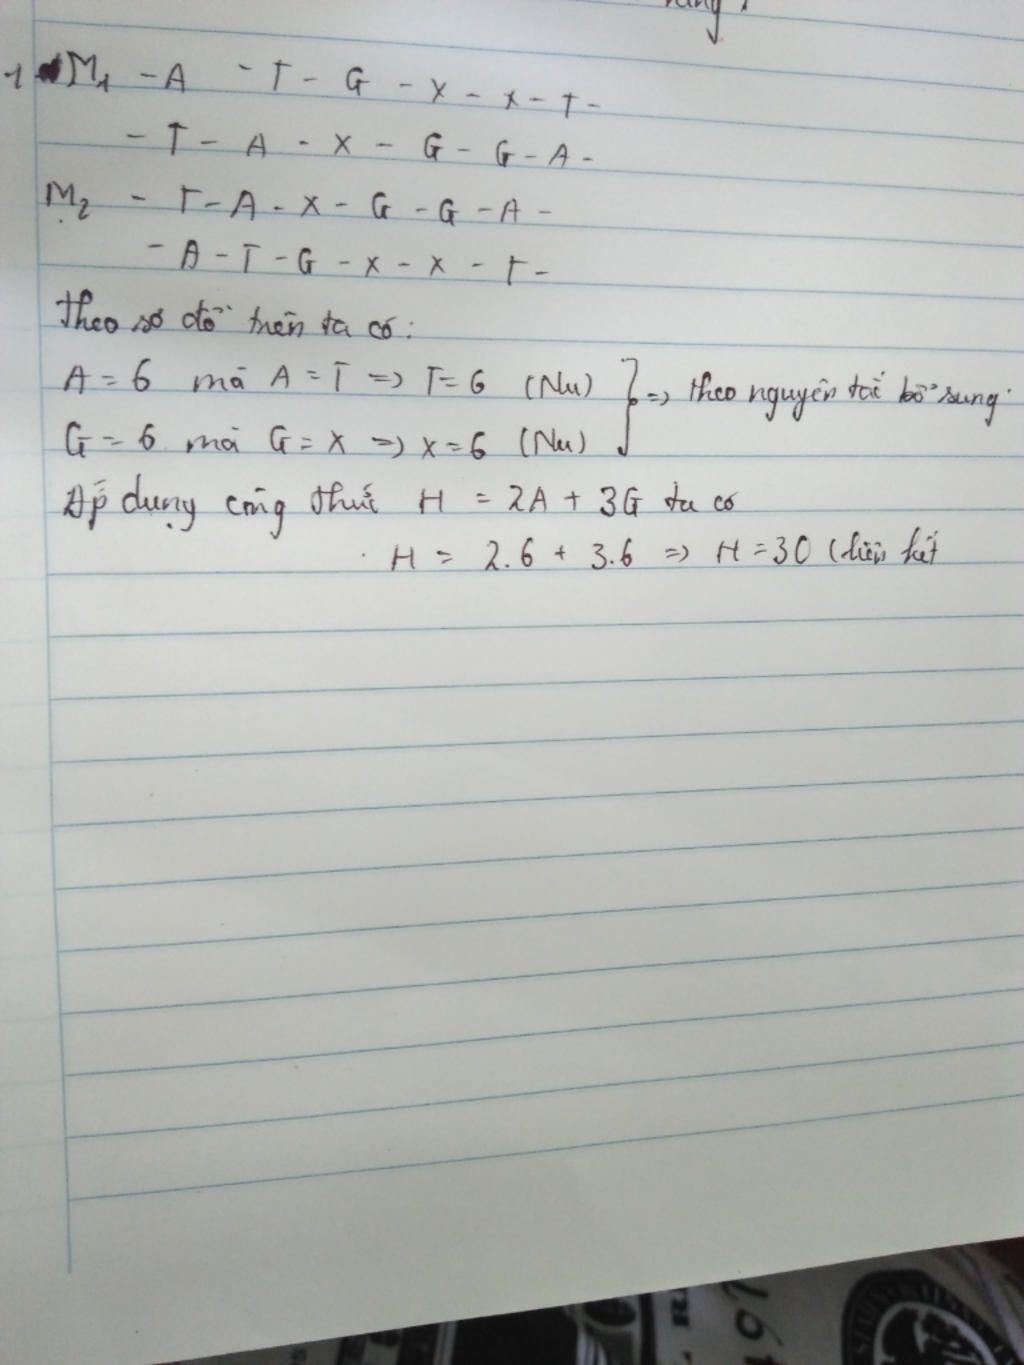 1 M1 - A - T - G - X - X - T -
- T - A - X - G - G - A -
M2 - T - A - X - G - G - A -
- A - T - G - X - X - T -
Theo sơ đồ trên ta có:
A = 6 mà A = T => T = 6 (Nu) } => theo nguyên tắc bổ sung
G = 6 mà G = X => X = 6 (Nu)
Áp dụng công thức H = 2A + 3G ta có
H = 2.6 + 3.6 => H = 30 (liên kết